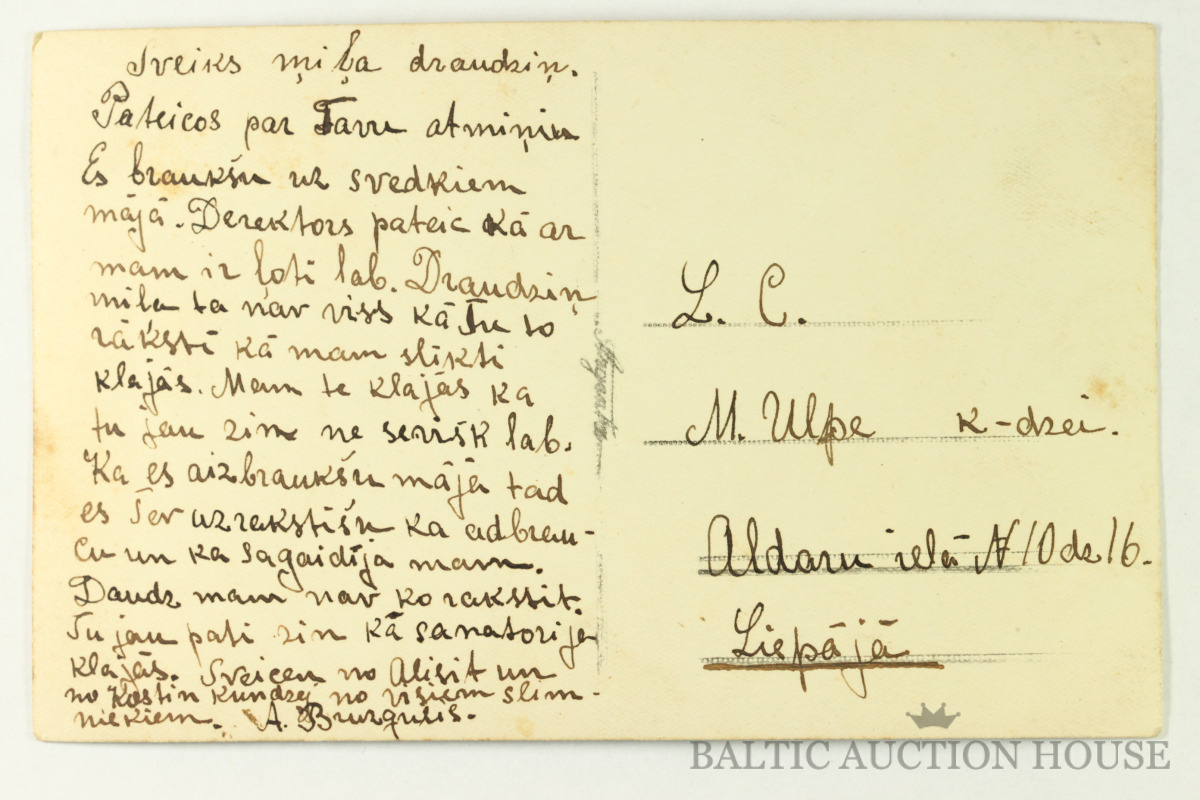 Sveiks miļa draudziņ.
Pateicos par Tavu atmiņiu
Es braukšu uz svedkiem
mājā. Derektors pateic kā ar
mam ir ļoti lab. Draudziņ
miļa ta nav viss kā Tu to
rāksti kā mam slikti
klajās. Mam te klajās ka
tu jau zin ne sevišk lab.
Ka es aizbraukšu mājā tad
es Tev uzrakstišu ka adbrau-
cu un ka sagaidīja mam.
Daudz mam nav ko rakstit.
Tu jau pati zin kā sanatorija
klajās. Sveicen no Alisit un
no Kostin kundzes no visiem slim-
niekiem. A. Bruzgulis.
L. C.
M. Ulpe k-dzei.
Aldaru ielā N 10 dz 16.
Liepājā
BALTIC AUCTION HOUSE